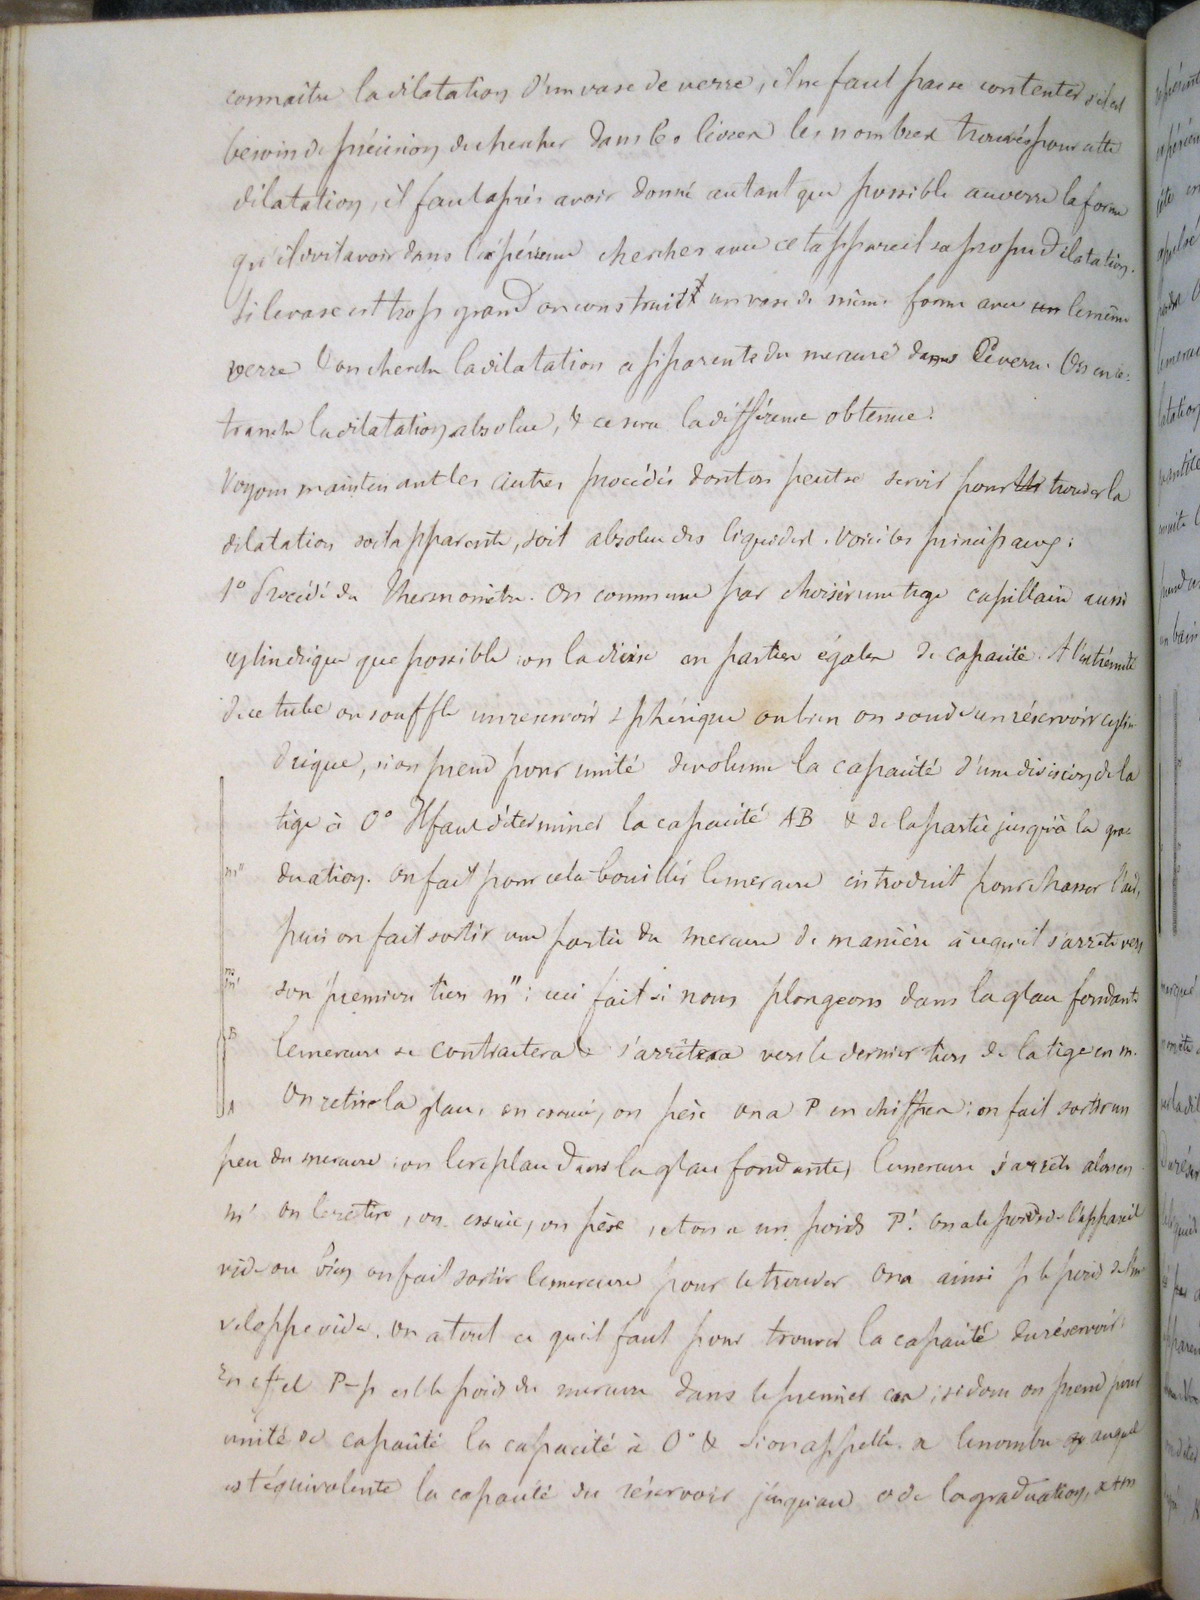 connaître la dilatation d'un vase de verre, il ne faut pas se contenter s'il est
besoin de précision de chercher dans les livres les nombres trouvés pour cette
dilatation, il faut après avoir donné autant que possible au verre la forme
qu'il doit avoir dans l'expérience chercher avec cet appareil sa propre dilatation.
Si le vase est trop grand on construit un vase de même forme avec un le même
verre l'on cherche la dilatation apparente du mercure dans ce verre. On en re-
tranche la dilatation absolue, & ce sera la différence obtenue.
Voyons maintenant les autres procédés dont on peut se servir pour trouver la
dilatation soit apparente, soit absolue des liquides. Voici les principaux :
1° Procédé du Thermomètre. On commence par choisir une tige capillaire aussi
cylindrique que possible on la divise en parties égales de capacité. A l'extrémité
de ce tube on souffle un reservoir sphérique ou bien on soude un réservoir cylin
drique, si on prend pour unité de volume la capacité d'une division de la
tige à 0° Il faut déterminer la capacité AB & de la partie jusqu'à la gra
duation. On fait pour cela bouillir le mercure introduit pour chasser l'air,
puis on fait sortir une partie du mercure de manière à ce qu'il s'arrête vers
son premier tiers m" : ceci fait si nous plongeons dans la glace fondante
le mercure se contractera & s'arrêtera vers le dernier tiers de la tige en m.
On retire la glace, on essuie, on pèse on a P en chiffres ; on fait sortir un
peu du mercure ; on le replace dans la glace fondante, le mercure s'arrête alors en
m' on le retire, on essuie, on pèse, et on a un poids P'. On a le poids de l'appareil
vide ou bien on fait sortir le mercure pour le trouver On a ainsi p le poids de l'en
veloppe vide. On a tout ce qu'il faut pour trouver la capacité du réservoir.
En effet P-p est le poids du mercure dans le premier cas ; si donc on prend pour
unité de capacité la capacité à 0° & si on appelle x le nombre auquel
est équivalente la capacité du réservoir jusqu'au 0 de la graduation, x+m
m"
m
m'
B
A